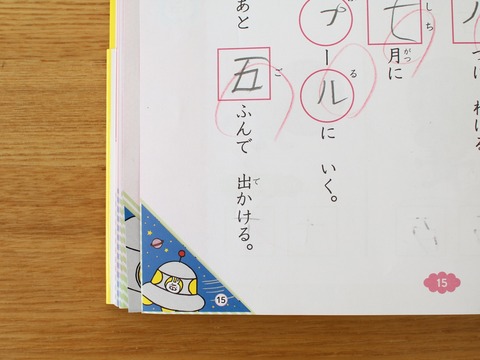 七月に
しち がつ
プールに いく。
る
あと 五ふんで 出かける。
ご で
15
15